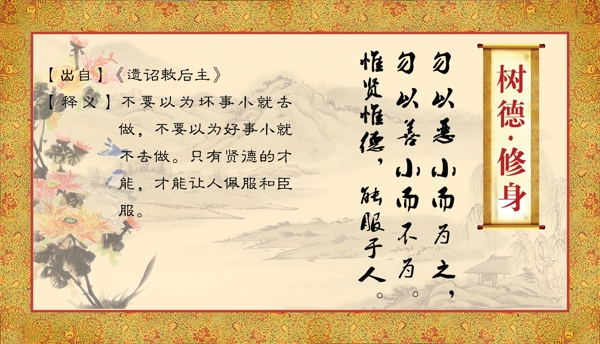 树德·修身
勿以恶小而为之，
勿以善小而不为。
惟贤惟德，能服于人。
【出自】《遗诏敕后主》
【释义】不要以为坏事小就去
做，不要以为好事小就
不去做。只有贤德的才
能，才能让人佩服和臣
服。